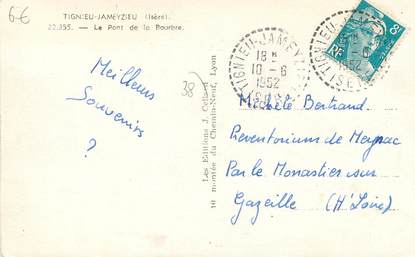 6€
TIGNIEU-JAMEYZIEU (Isère).
22.355. - Le Pont de la Bourbre.
Meilleurs
Souvenirs
?
38
Les Editions J. Cellard
10 montée du Chemin-Neuf, Lyon
TIGNIEU-JAMEYZIEU
18 H
10-6
1952
ISÈRE
8F
RF
Michèle Bertrand.
Preventorium de Meyzac
Par le Monastier sur
Gazeille (Hte Loire)